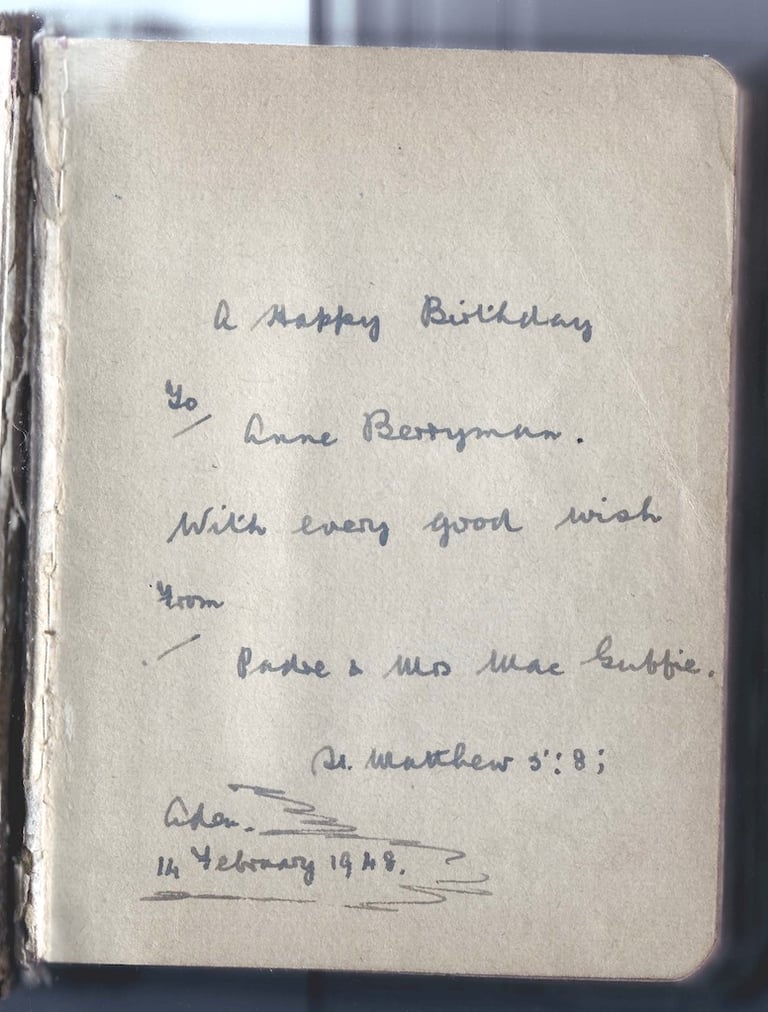 A Happy Birthday
To
Anne Berryman.
With every good wish
From
Padre & Mrs Mac Guffie.
St. Matthew 5:8;
Aden.
14 February 1948.